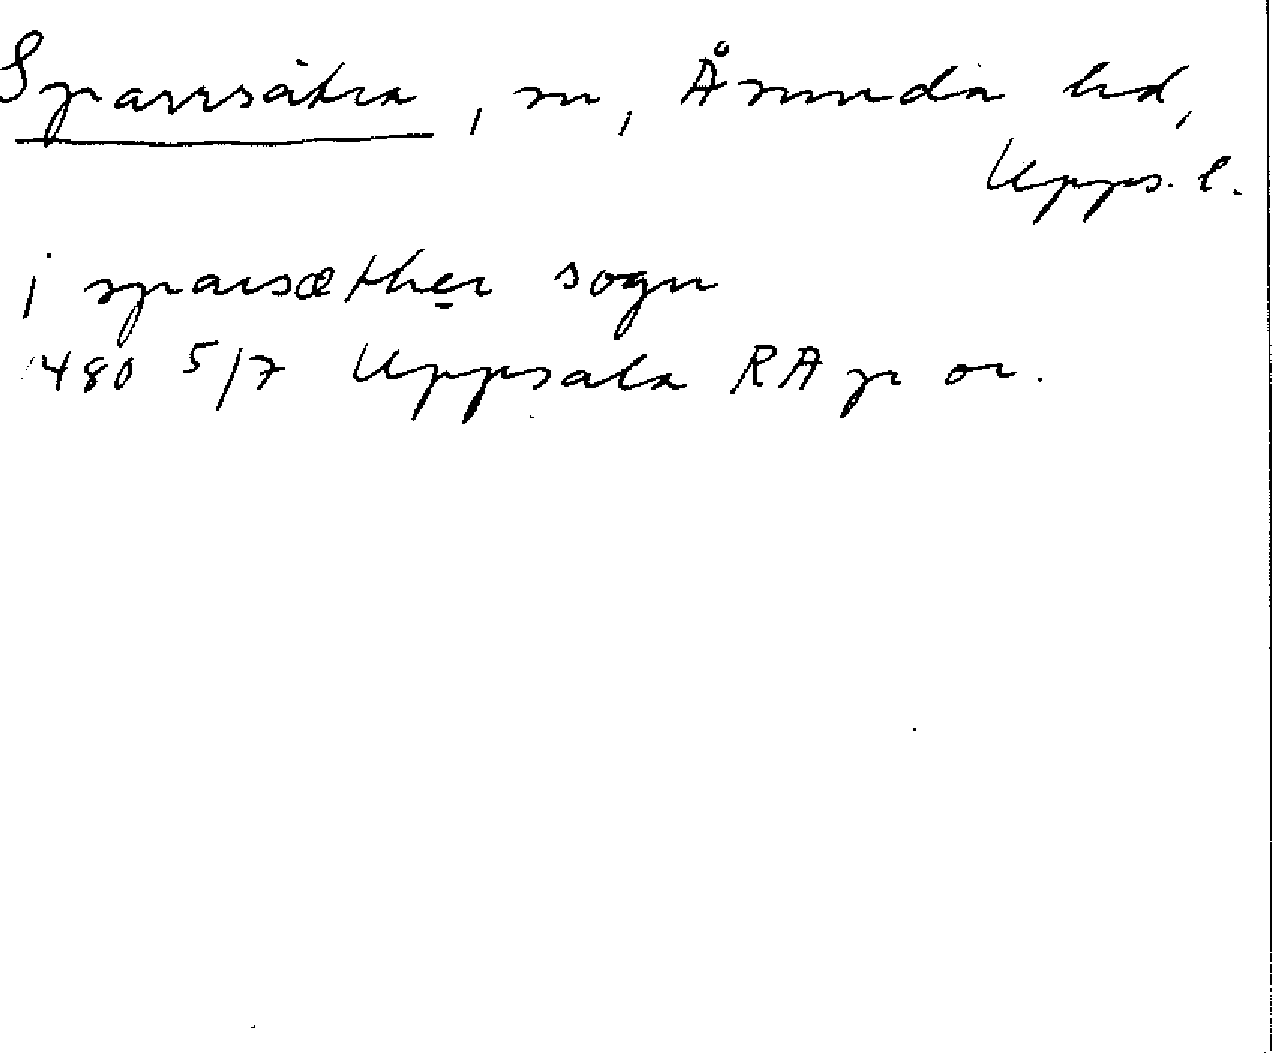 Sparrsätra, sn, Åsunda hd,
Upps. l.
j sparsæther sogn
1480 5/7 Uppsala RA p or.